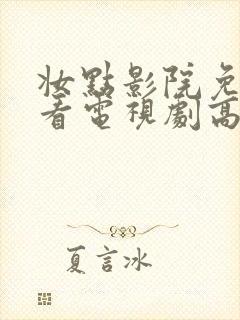 妝點影院免
看電視劇高
夏言冰